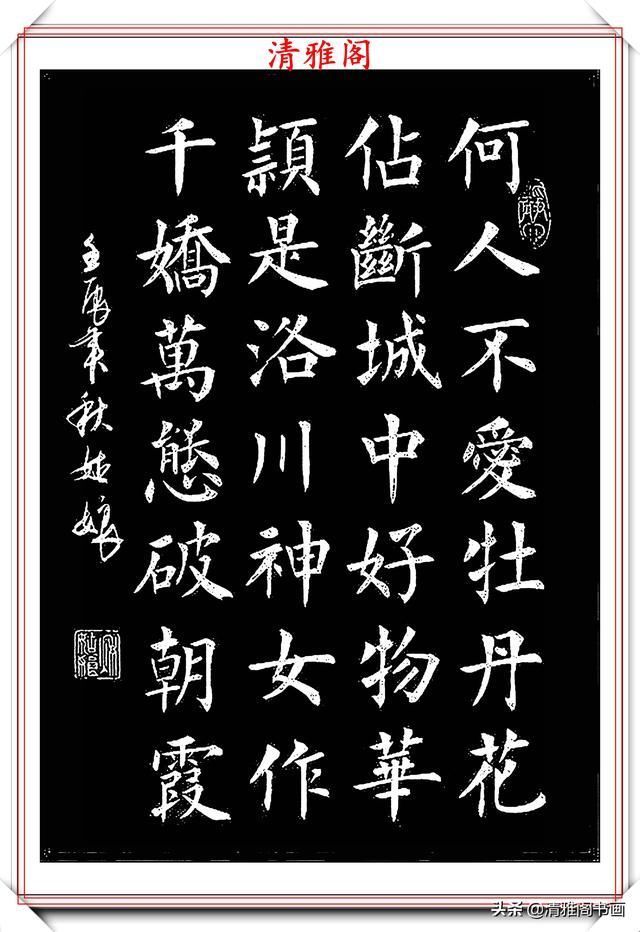 清雅阁
何人不愛牡丹花
佔斷城中好物華
是洛川神女作
千嬌萬態破朝霞
壬辰年秋姑娘
头条 @清雅阁书画